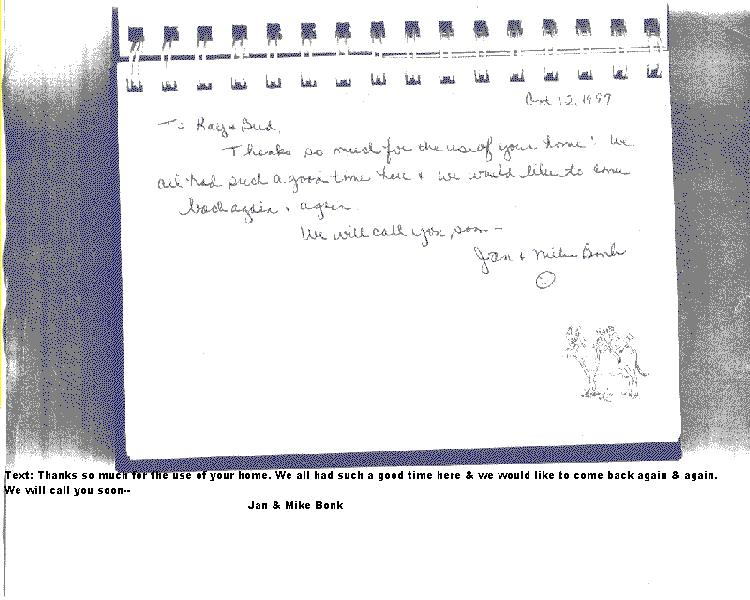 Oct 12, 1997
To Kay & Bud,
Thanks so much for the use of your home! We
all had such a good time here & we would like to come
back again & again.
We will call you soon --
Jan & Mike Bonk
Text: Thanks so much for the use of your home. We all had such a good time here & we would like to come back again & again.
We will call you soon--
Jan & Mike Bonk